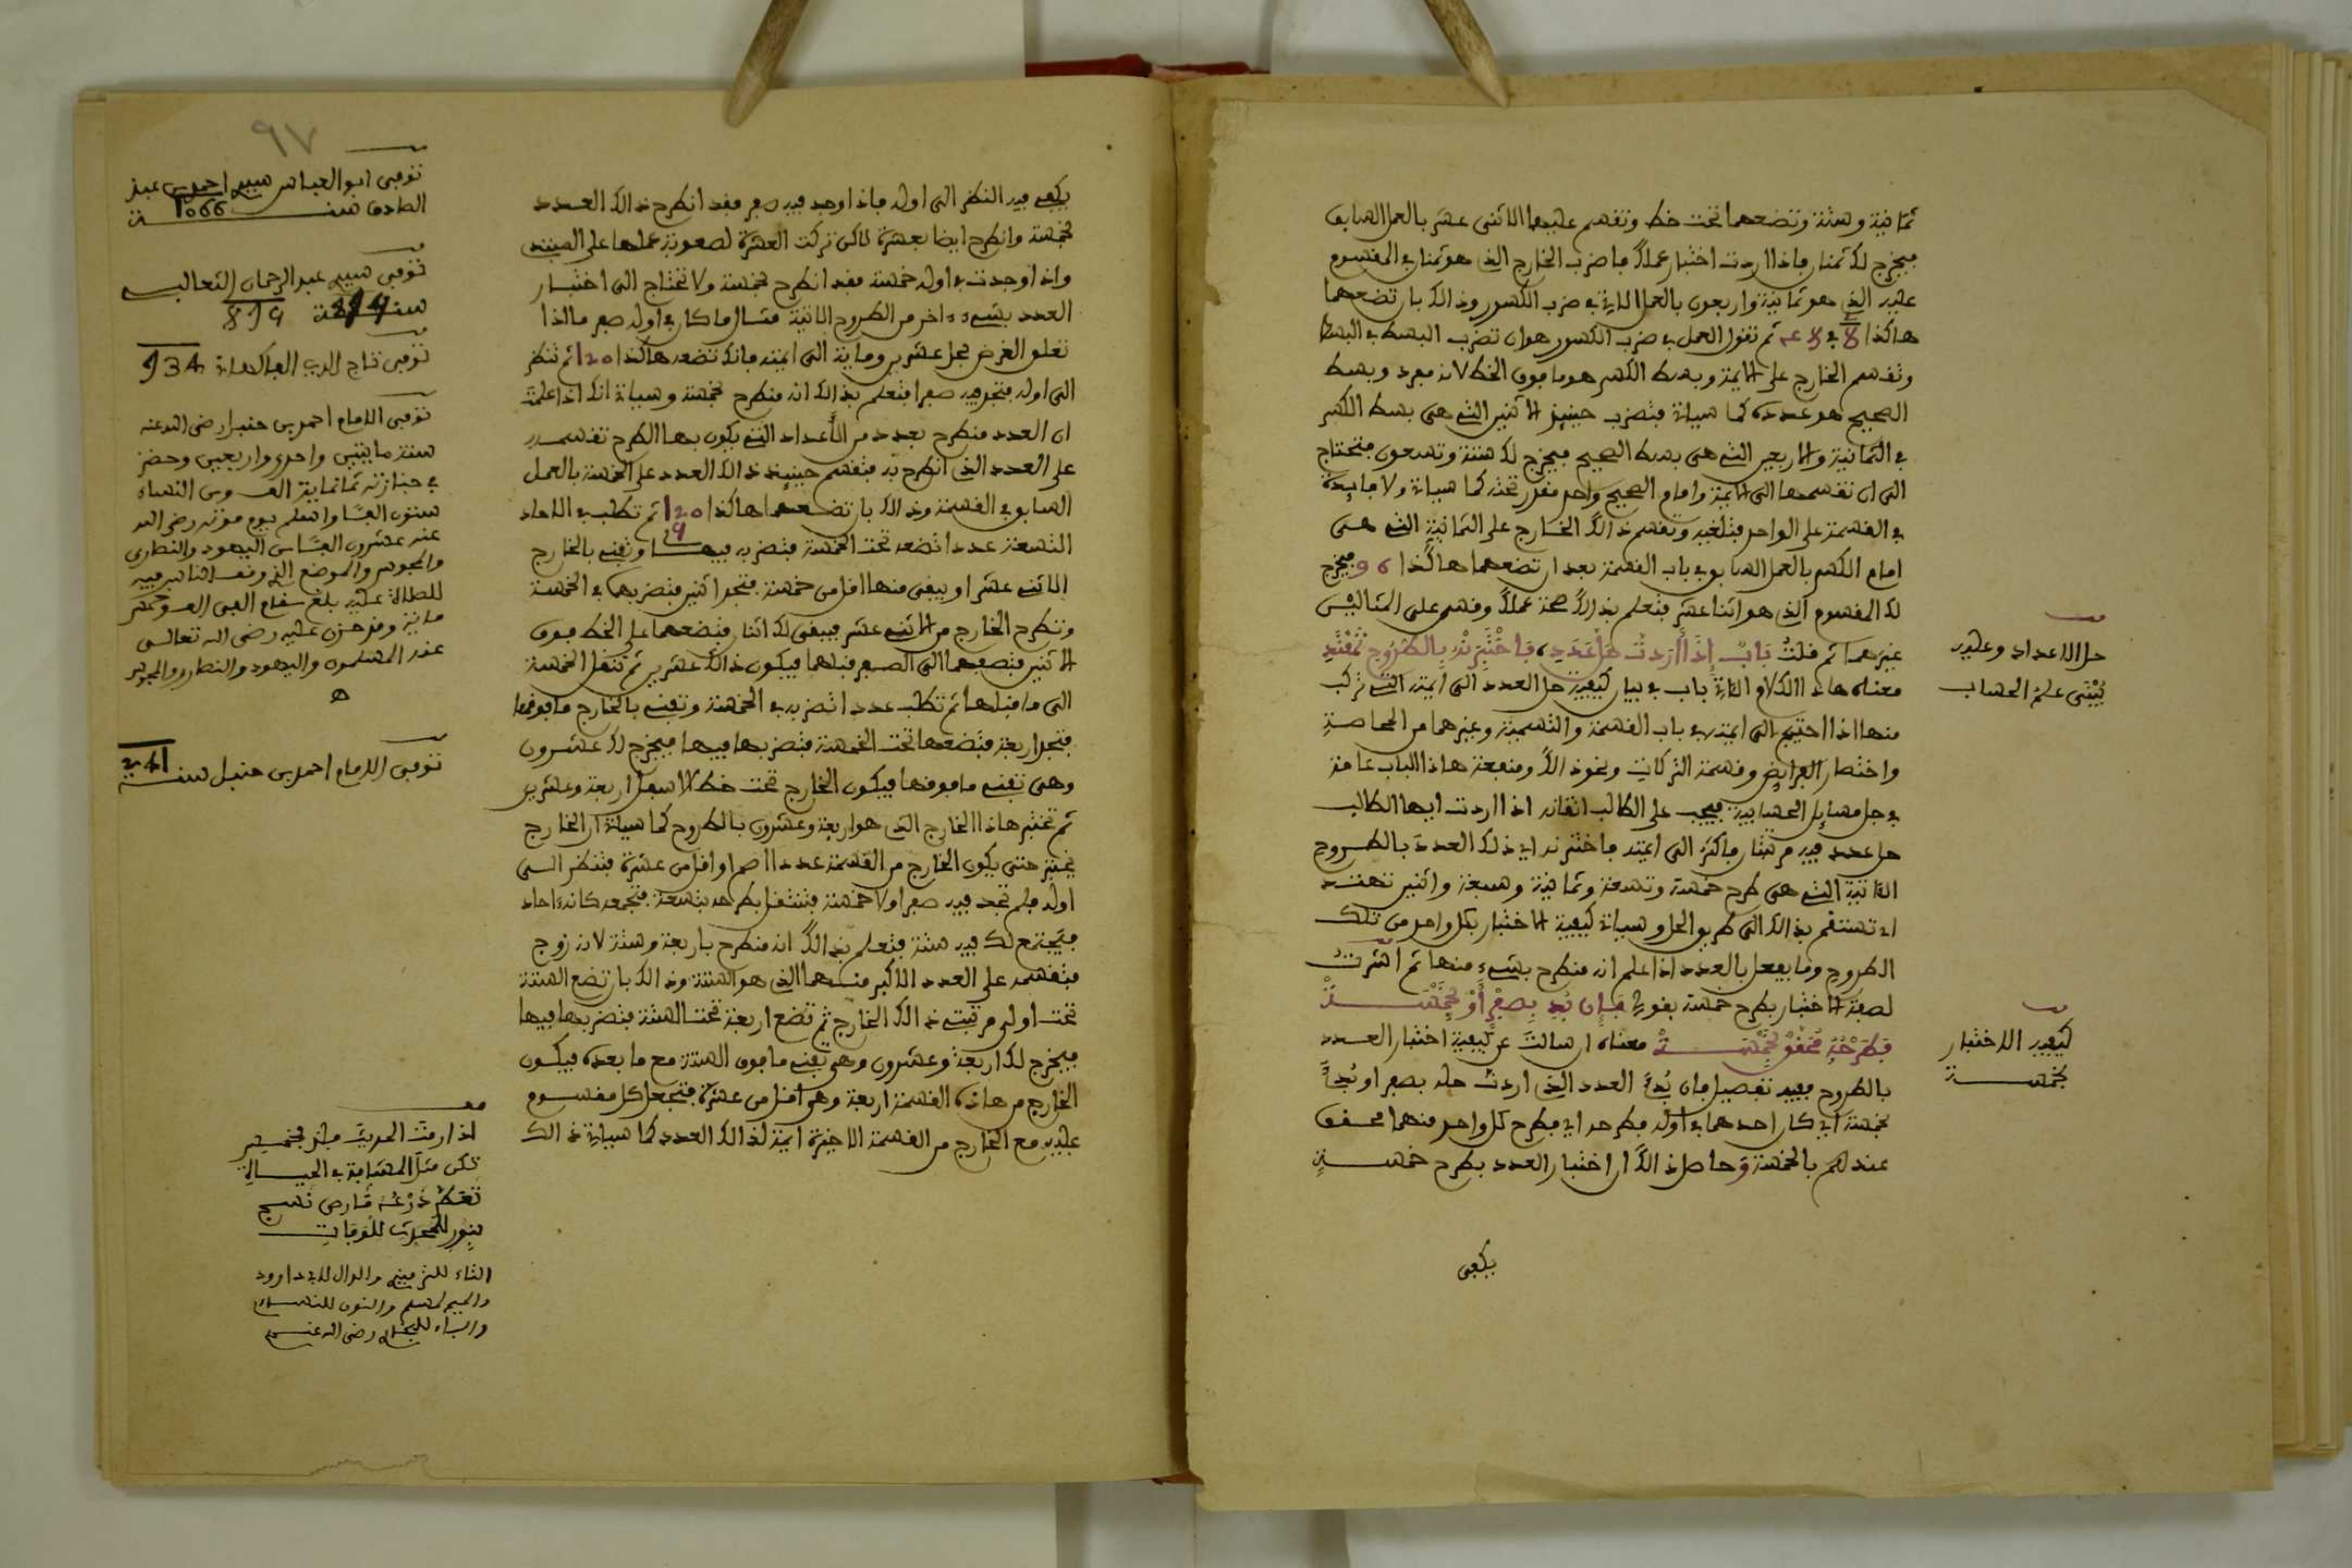 ثمانية وستة وتضعهما تحت خط وتقسم عليهما الاثنى عشر بالعمل السابق
فيخرج لك ثمنان فاذا اردت اختبار عملك فاضرب الخارج الذي هو ثمنان في المقسوم
عليه الذي هو ثمانية واربعون بالعمل الاتي في ضرب الكسور وذالك بان تضعهما
هاكذا ثم تقول العمل في ضرب الكسور هو ان تضرب البسط في البسط
وتقسم الخارج على الايمة وبسط الكسر هو ما فوق الخط لانه مفرد وبسط
الصحيح هو عدده كما سياتي فتضرب حينيذ الاثنين التي هي بسط الكسر
في الثمانية والاربعين التي هي بسط الصحيح فيخرج لك ستة وتسعون فتحتاج
الى ان تقسمها الى الايمة وامام الصحيح واحد مقدر تحته كما سياتي ولا فايدة
في القسمة على الواحد فتلغيه وتقسم ذالك الخارج على الثمانية التي هي
امام الكسر بالعمل السابق في باب القسمة بعد ان تضعهما هاكذا 96 فيخرج
لك المقسوم الذي هو اثنا عشر فتعلم بذالك صحة عملك وقس على المثالين
غيرهما ثم قلت باب إذا أردت حل عدد فاختبرنه بالطروح تقتد
معناه هاذا الكلام الاتي باب في بيان كيفية حل العدد الى ايمته التي تركب
منها اذا احتيج الى ايمته في باب القسمة والتسمية وغيرهما من المحاصة
واختصار الفرايض وقسمة التركات ونحو ذالك ومنفعة هاذا الباب عامة
في جل مسايل الحسابية فيجب على الطالب اتقانه اذا اردت ايها الطالب
حل عدد فيه مرتبتان فاكثر الى ايمته فاختبرنه اي ذلك العدد بالطروح
الثانية التي هي طرح خمسة وتسعة وثمانية وسبعة واثنين تهتد
اي تستقم بذالك الى طريق الحل وسياتي كيفية الاختبار بكل واحد من تلك
الطروح وما يفعل بالعدد اذا علم انه منطرح بشيء منها ثم اشرت
لصفة الاختبار بطرح خمسة بقولي فإن بدي بصفر أو بخمسة
فطرحه محقق بخمسة معناه ان سالت عن كيفية اختبار العدد
بالطروح ففيه تفصيل فان بدئ العدد الذي اردت حله بصفر او بدئ
بخمسة اي كان احدهما في اوله فطرحه اي فطرح كل واحد منهما محقق
عندهم بالخمسة وحاصل ذالك ان اختبار العدد بطرح خمسة
يكفى
حل الاعداد وعليه
يبنى علم الحساب
كيفية الاختبار
بخمسة
يكفي فيه النظر الى اوله فاذا وجد فيه صفر فقد انطرح ذالك العدد
بخمسة وانطرح ايضا بعشرة لاكن تركت العشرة لصعوبة عملها على المبتدي
واذا وجدت في اوله خمسة فقد انطرح بخمسة ولا تحتاج الى اختبار
العدد بشيء اخر من الطروح الثانية مثال ما كان في اوله صفر ما اذا
تعلق الغرض بحل عشرين وماية الى ايمته فانك تضعه هاكذا 120 ثم تنظر
الى اوله فتجد فيه صفرا فتعلم بذالك انه منطرح بخمسة وسياتي انك اذا علمت
ان العدد منطرح بعدد من الأعداد التي يكون بها الطرح تقسمه
على العدد الذي انطرح به فتقسم حينيذ ذالك العدد على الخمسة بالعمل
السابق في القسمة وذالك بان تضعهما هاكذا 120 ثم تطلب في الاحاد
التسعة عددا تضعه تحت الخمسة فتضربه فيها وتفني بالخارج
الاثني عشر او يبقى منها اقل من خمسة فتجد اثنين فتضربهما في الخمسة
وتطرح الخارج من الاثني عشر فيبقى لك اثنان فتضعهما على الخط فوق
الاثنين فتضعهما الى الصفر قبلهما فيكون ذالك عشرين ثم تنقل الخمسة
الى ما قبلها ثم تطلب عددا تضربه في الخمسة وتفني بالخارج ما فوقها
فتجد اربعة فتضعها تحت الخمسة فتضربها فيها فيخرج لك عشرون
وهي تفني ما فوقها فيكون الخارج تحت خط الاسفل اربعة وعشرين
ثم تختبر هاذا الخارج الذي هو اربعة وعشرون بالطروح كما سياتي ان الخارج
يختبر حتى يكون الخارج من القسمة عددا اصم او اقل من عشرة فتنظر الى
اوله فلم تجد فيه صفرا ولا خمسة فتنتقل بطرحه بتسعة فتجمعه كانه احاد
فيجتمع لك فيه ستة فتعلم بذالك انه منطرح باربعة وستة لانه زوج
فتقسمه على العدد الاكبر منهما الذي هو الستة وذالك بان تضع الستة
تحت اولى مرتبتي ذالك الخارج ثم تضع اربعة تحت الستة فتضربها فيها
فيخرج لك اربعة وعشرون وهي تفني ما فوق الستة مع ما بعده فيكون
الخارج من هاذه القسمة اربعة وهي اقل من عشرة فتجعل كل مقسوم
عليه مع الخارج من القسمة الاخيرة ايمة لذالك العدد كما سياتي ذالك
٩٧
توفى ابو العباس سيدي احمد بن عبد
الصادق سنة 1066
توفى سيدي عبد الرحمان الثعالبي
سنة 874
توفى تاج الدين الفاكهاني 734
توفى الامام احمد بن حنبل رضى الله عنه
سنة مايتين واحدى واربعين وحضر
في جنازته ثمانماية الف ومن النساء
ستون الفا واسلم يوم موته رضى الله
عنه عشرون الفا من اليهود والنصارى
والمجوس والموضع الذي وقف الناس فيه
للصلاة عليه بلغ مقام الفي الف وخمس
ماية وقد حزن عليه رضى الله تعالى
عنه المسلمون واليهود والنصارى والمجوس
ه
توفى الامام احمد بن حنبل سنة 241
اذا رمت الحديث
الثاء للترميذي والدال لابي داوود
والميم لمسلم والنون للنساءي
والباء للبخاري رضى الله عنهم